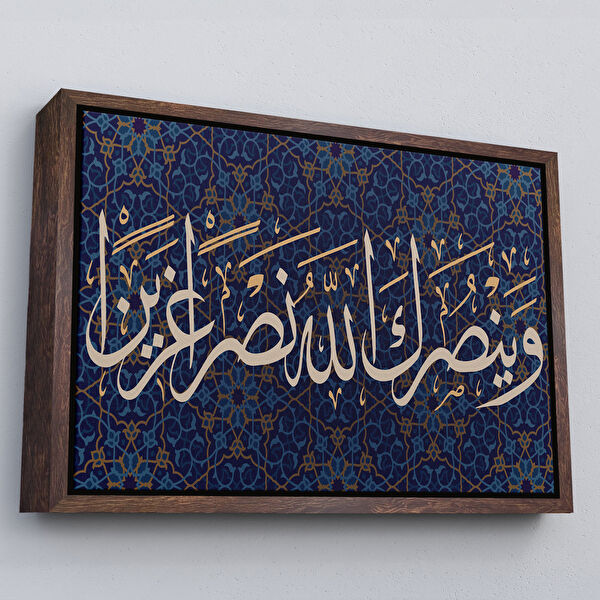 وَيَنْصُرَكَ اللّٰهُ نَصْرًا عَزِيزًا